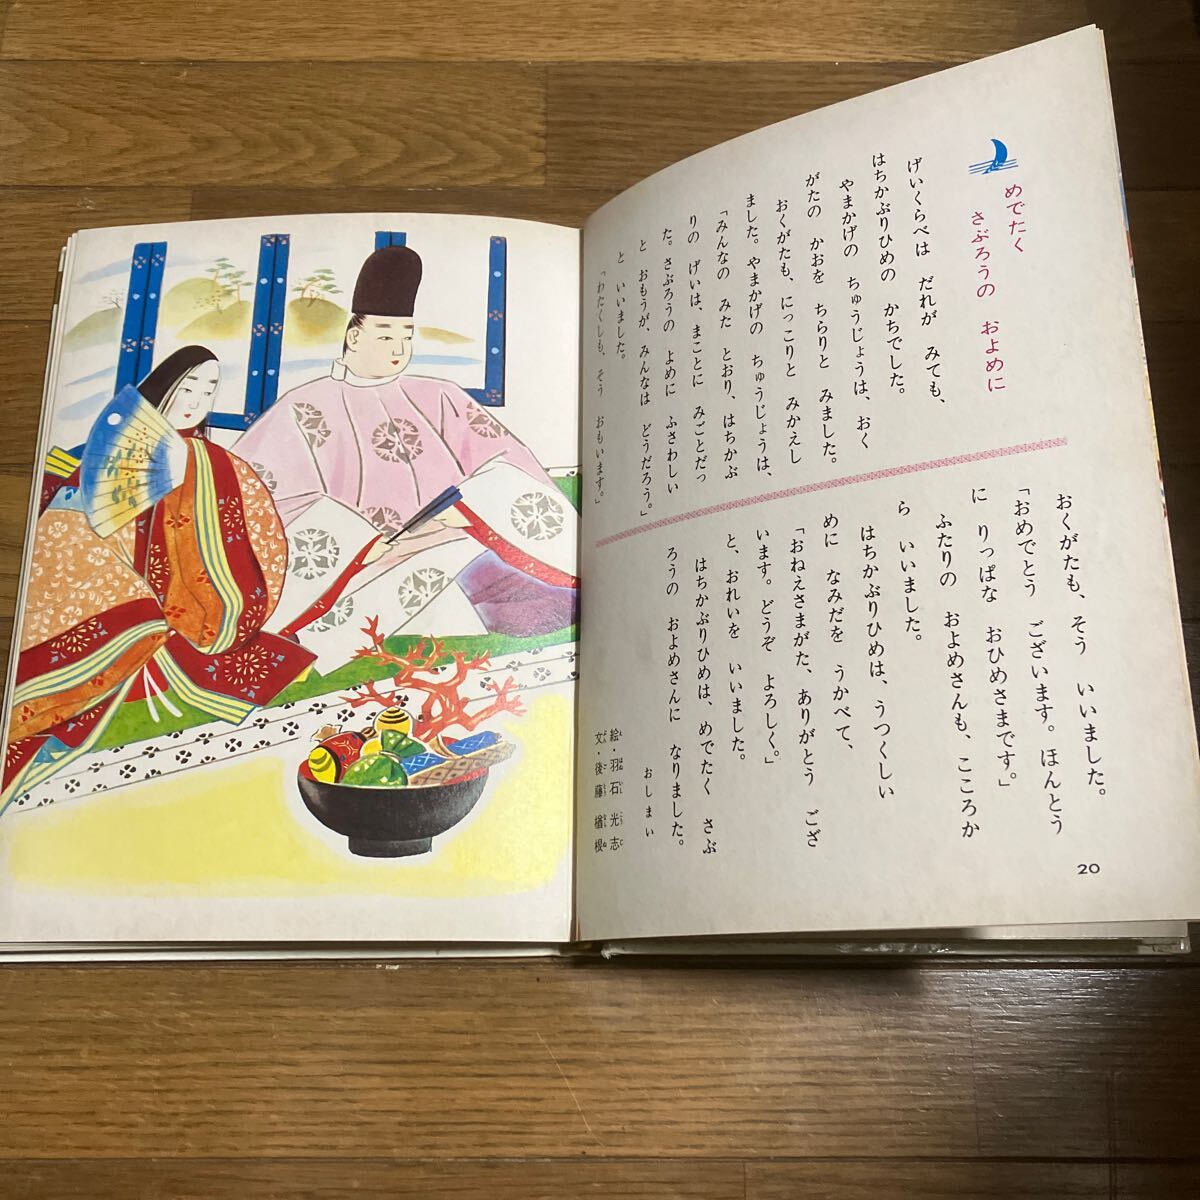 めでたく
さぶろうの およめに
げいくらべは だれが みても、
はちかぶりひめの かちでした。
やまかげの ちゅうじょうは、おく
がたの かおを ちらりと みました。
おくがたも、にっこりと みかえし
ました。やまかげの ちゅうじょうは、
「みんなの みた とおり、はちかぶ
りの げいは、まことに みごとだっ
た。さぶろうの よめに ふさわしい
と おもうが、みんなは どうだろう。」
と いいました。
「わたくしも、そう おもいます。」
おくがたも、そう いいました。
「おめでとう ございます。ほんとう
に りっぱな おひめさまです。」
ふたりの およめさんも、こころか
ら いいました。
はちかぶりひめは、うつくしい
めに なみだを うかべて、
「おねえさまがた、ありがとう ござ
います。どうぞ よろしく。」
と、おれいを いいました。
はちかぶりひめは、めでたく さぶ
ろうの およめさんに なりました。
おしまい
絵・羽石光志
文・後藤楢根
20